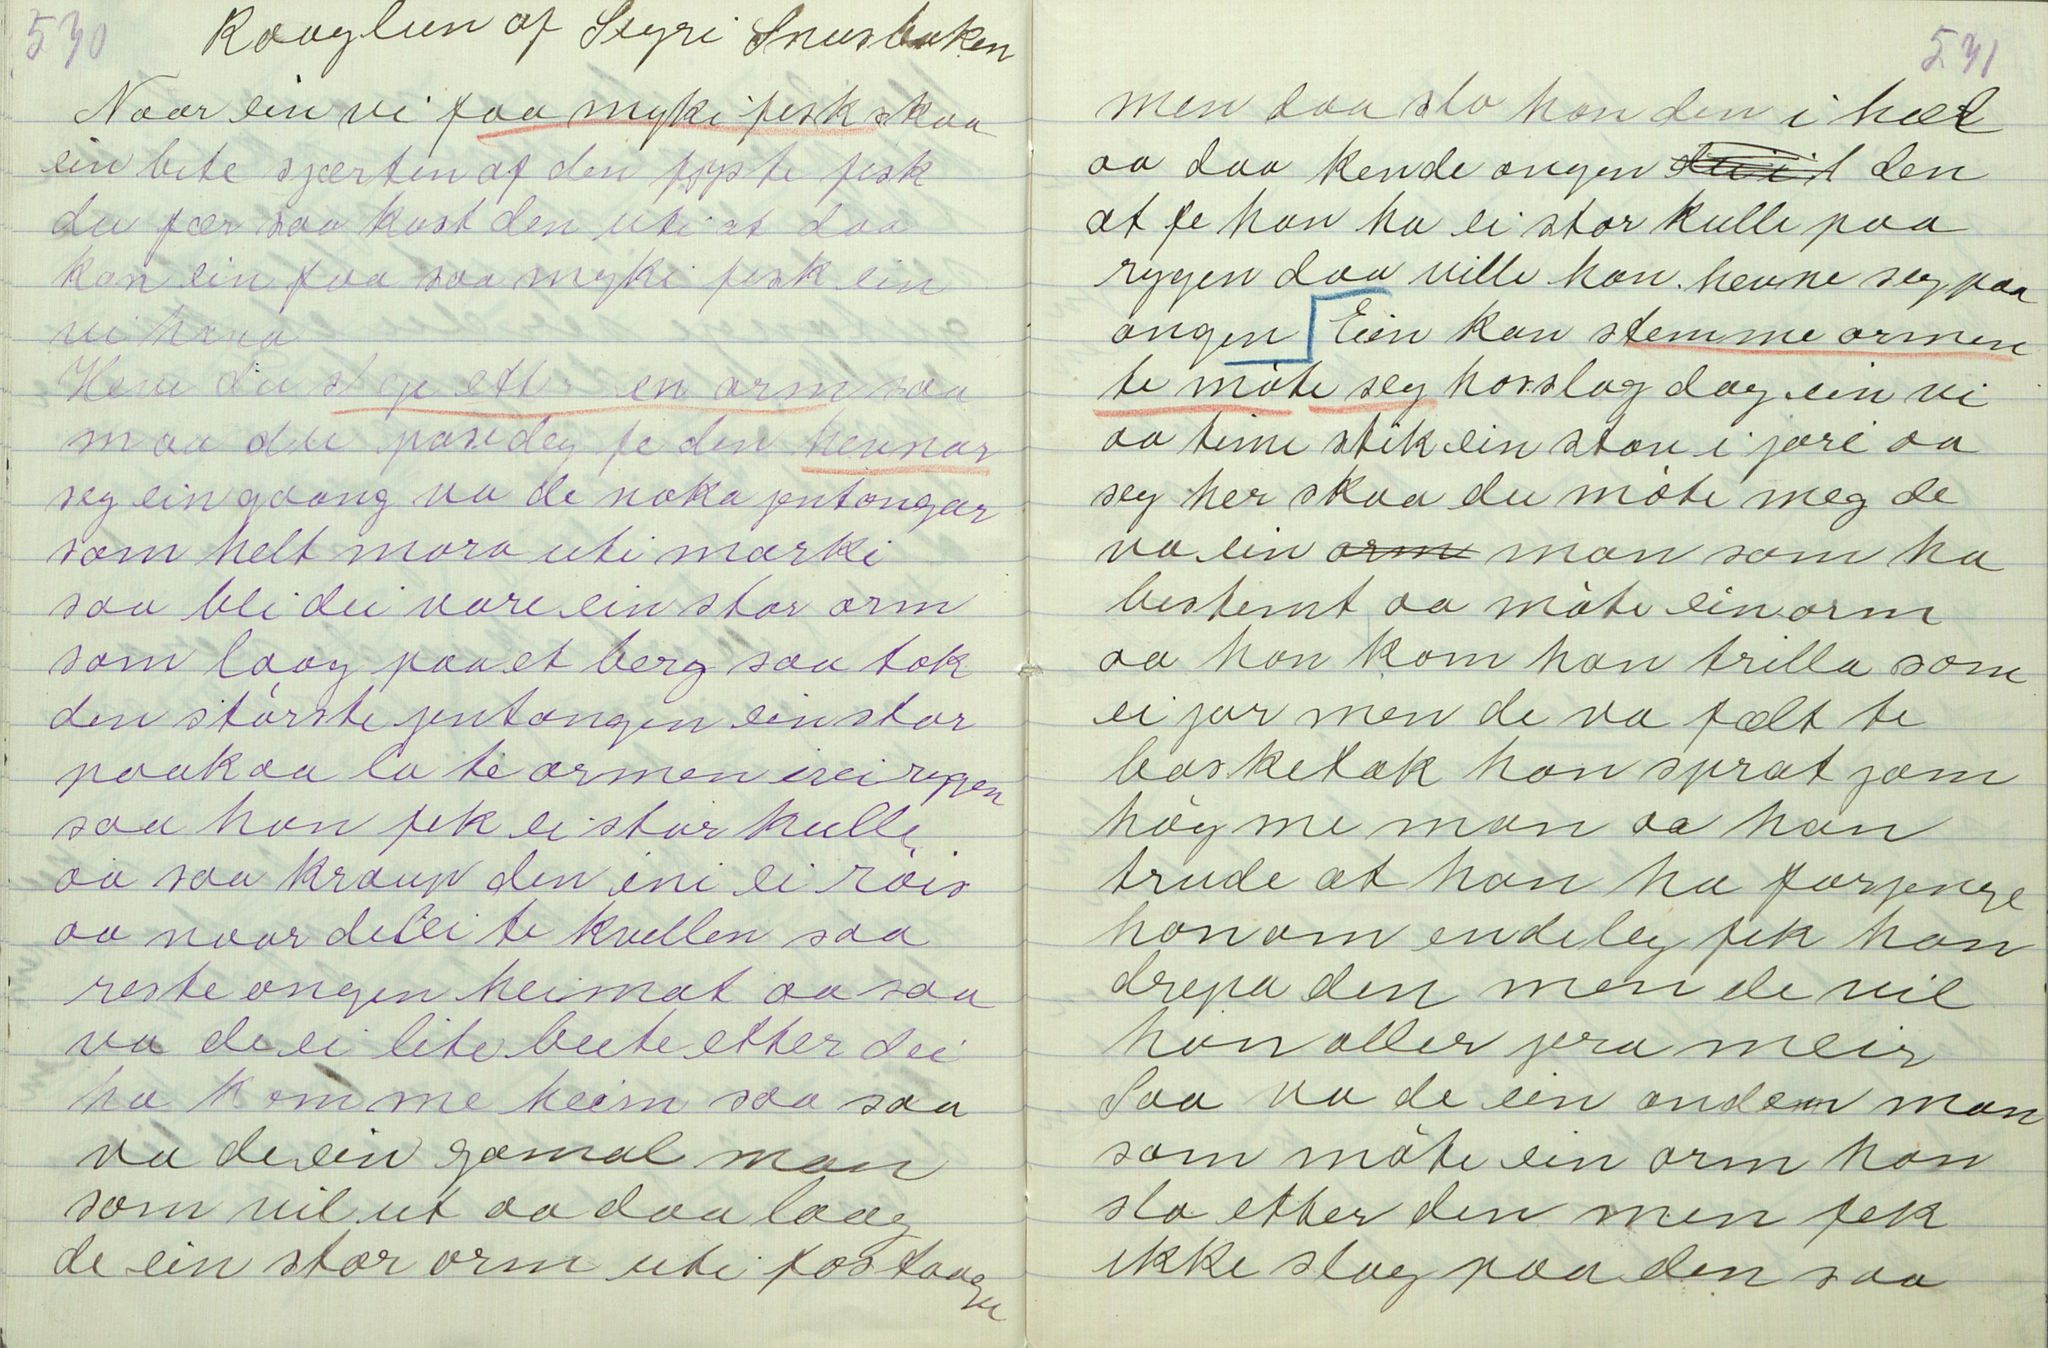 530
Raaglun af Segri Snusbuken
Naar ein vi faa myki fisk skaa
ein bite spærten af den fyste fisk
du fær saa kast den uti at daa
kan ein faa saa myki fisk ein
vi hava
Heve du slege ett en orm saa
maa du pase deg fe den hevnar
seg ein gaang va de noka jentongar
som helt mora uti marki
saa blei dei vare ein stor orm
som laag paa et berg saa tok
den störste jentongen ein stor
paakaa la te ormen ivei rygen
saa han fik ei stor kulle
aa saa kraup den ini ei röis
aa naar de lei te kvellen saa
reste ongen heimat aa saa
va de ei lite beite etter dei
ha komme heim saa saa
va de ein gamal man
som vil ut aa daa laag
de ein stor orm uti fostaage
531
men daa slo han den i hæl
aa daa kende ongen den
at fe han ha ei stor kulle paa
rygen daa ville han hevne seg paa
ongen Ein kan stemme ormen
te möte seg hosslag dag ein vi
aa time stik ein stav i jore aa
seg her skaa du möte meg de
va ein orm man som ha
bestemt aa möte ein orm
aa han kom han trilla som
ei jor men de va fælt te
basketak han sprat jam
hög me man aa han
trude at han ha forjenge
honom endeleg fik han
drepa den men de vil
han aller jera meir
Saa va de ein anden man
som möte ein orm han
slo etter den men fek
ikke slag paa den saa